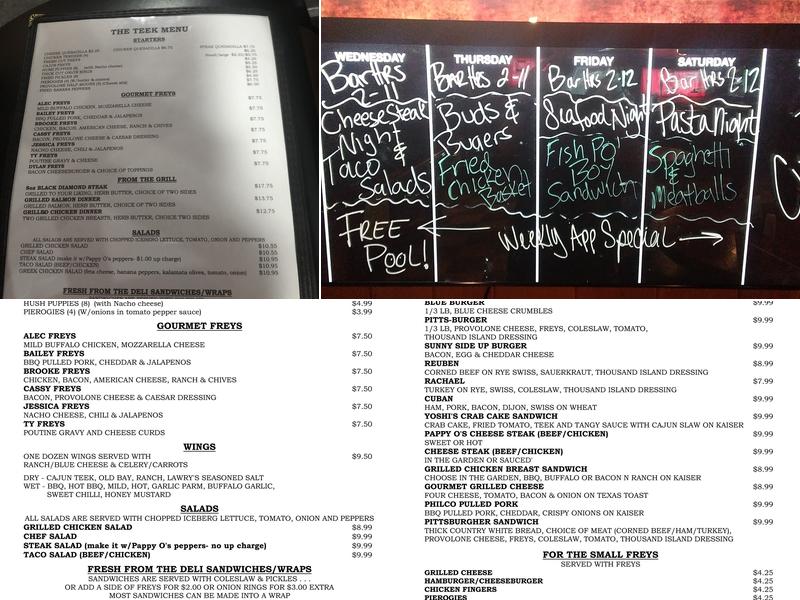 THE TEEK MENU
STARTERS
CHEESE QUESADILLA $5.25 CHICKEN QUESADILLA $6.75 STEAK QUESADILLA $7.25
GOURMET FREYS
ALEC FREYS $7.75
MILD BUFFALO CHICKEN, MOZZARELLA CHEESE
BAILEY FREYS $7.75
BBQ PULLED PORK, CHEDDAR & JALAPENOS
BROOKE FREYS $7.75
CHICKEN, BACON, AMERICAN CHEESE, RANCH & CHIVES
CASSY FREYS $7.75
BACON, PROVOLONE CHEESE & CAESAR DRESSING
JESSICA FREYS $7.75
NACHO CHEESE, CHILI & JALAPENOS
TY FREYS $7.75
POUTINE GRAVY & CHEESE
DYLAN FREYS $7.75
BACON CHEESEBURGER & CHOICE OF TOPPINGS
FROM THE GRILL
8oz BLACK DIAMOND STEAK $17.75
GRILLED TO YOUR LIKING, HERB BUTTER, CHOICE OF TWO SIDES
GRILLED SALMON DINNER $13.75
GRILLED SALMON, HERB BUTTER, CHOICE OF TWO SIDES
GRILLED CHICKEN DINNER $12.75
TWO GRILLED CHICKEN BREASTS, HERB BUTTER, CHOICE OF TWO SIDES
SALADS
ALL SALADS ARE SERVED WITH CHOPPED ICEBERG LETTUCE, TOMATO, ONION AND PEPPERS
GRILLED CHICKEN SALAD $10.55
CHEF SALAD $10.55
STEAK SALAD (make it w/Pappy O's peppers- $1.00 up charge) $10.95
TACO SALAD (BEEF/CHICKEN) $10.95
GREEK CHICKEN SALAD (feta cheese, banana peppers, kalamata olives, tomato, onion) $10.95
FRESH FROM THE DELI SANDWICHES/WRAPS
WEDNESDAY
Bar Hrs
2-11
Cheese Steak
Night
&
Taco
Salads
THURSDAY
Bar Hrs 2-11
Buds &
Burgers
Fried
Chicken
Basket
FRIDAY
Bar Hrs 2-12
Seafood Night
Fish Po'
Bo'
Sandwich
SATURDAY
Bar Hrs 2-12
Pasta Night
Spaghetti
&
Meatballs
FREE
POOL!
Weekly App Special
HUSH PUPPIES (8) (with Nacho cheese) $4.99
PIEROGIES (4) (W/onions in tomato pepper sauce) $3.99
GOURMET FREYS
ALEC FREYS $7.50
MILD BUFFALO CHICKEN, MOZZARELLA CHEESE
BAILEY FREYS $7.50
BBQ PULLED PORK, CHEDDAR & JALAPENOS
BROOKE FREYS $7.50
CHICKEN, BACON, AMERICAN CHEESE, RANCH & CHIVES
CASSY FREYS $7.50
BACON, PROVOLONE CHEESE & CAESAR DRESSING
JESSICA FREYS $7.50
NACHO CHEESE, CHILI & JALAPENOS
TY FREYS $7.50
POUTINE GRAVY AND CHEESE CURDS
WINGS
ONE DOZEN WINGS SERVED WITH $9.50
RANCH/BLUE CHEESE & CELERY/CARROTS
DRY - CAJUN TEEK, OLD BAY, RANCH, LAWRY'S SEASONED SALT
WET - BBQ, HOT BBQ, MILD, HOT, GARLIC PARM, BUFFALO GARLIC,
SWEET CHILLI, HONEY MUSTARD
SALADS
ALL SALADS ARE SERVED WITH CHOPPED ICEBERG LETTUCE, TOMATO, ONION AND PEPPERS
GRILLED CHICKEN SALAD $8.99
CHEF SALAD $9.99
STEAK SALAD (make it w/Pappy O's peppers- no up charge) $9.99
TACO SALAD (BEEF/CHICKEN) $9.99
FRESH FROM THE DELI SANDWICHES/WRAPS
SANDWICHES ARE SERVED WITH COLESLAW & PICKLES . . .
OR ADD A SIDE OF FREYS FOR $2.00 OR ONION RINGS FOR $3.00 EXTRA
MOST SANDWICHES CAN BE MADE INTO A WRAP
BLUE BURGER $9.99
1/3 LB, BLUE CHEESE CRUMBLES
PITTS-BURGER $9.99
1/3 LB, PROVOLONE CHEESE, FREYS, COLESLAW, TOMATO,
THOUSAND ISLAND DRESSING
SUNNY SIDE UP BURGER $9.99
BACON, EGG & CHEDDAR CHEESE
REUBEN $8.99
CORNED BEEF ON RYE SWISS, SAUERKRAUT, THOUSAND ISLAND DRESSING
RACHAEL $7.99
TURKEY ON RYE, SWISS, COLESLAW, THOUSAND ISLAND DRESSING
CUBAN $9.99
HAM, PORK, BACON, DIJON, SWISS ON WHEAT
YOSHI'S CRAB CAKE SANDWICH $9.99
CRAB CAKE, FRIED TOMATO, TEEK AND TANGY SAUCE WITH CAJUN SLAW ON KAISER
PAPPY O'S CHEESE STEAK (BEEF/CHICKEN) $9.99
SWEET OR HOT
CHEESE STEAK (BEEF/CHICKEN) $9.99
IN THE GARDEN OR SAUCED'
GRILLED CHICKEN BREAST SANDWICH $8.99
CHOOSE IN THE GARDEN, BBQ, BUFFALO OR BACON N RANCH ON KAISER
GOURMET GRILLED CHEESE $8.99
FOUR CHEESE, TOMATO, BACON & ONION ON TEXAS TOAST
PHILCO PULLED PORK $9.99
BBQ PULLED PORK, CHEDDAR, CRISPY ONIONS ON KAISER
PITTSBURGHER SANDWICH $9.99
THICK COUNTRY WHITE BREAD, CHOICE OF MEAT (CORNED BEEF/HAM/TURKEY),
PROVOLONE CHEESE, FREYS, COLESLAW, TOMATO, THOUSAND ISLAND DRESSING
FOR THE SMALL FREYS
SERVED WITH FREYS
GRILLED CHEESE $4.25
HAMBURGER/CHEESEBURGER $4.25
CHICKEN FINGERS $4.25
PIEROGIES $4.25